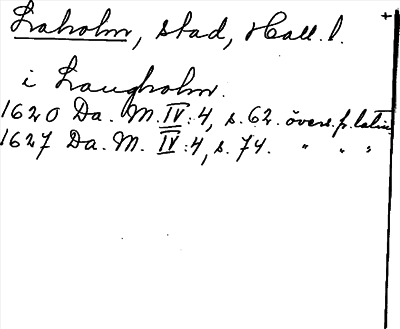 Laholm, stad, Hall. l. +
i Laugholm.
1620 Da. M. IV: 4, s. 62. övers. fr. latin
1627 Da. M. IV: 4, s. 74. " " "